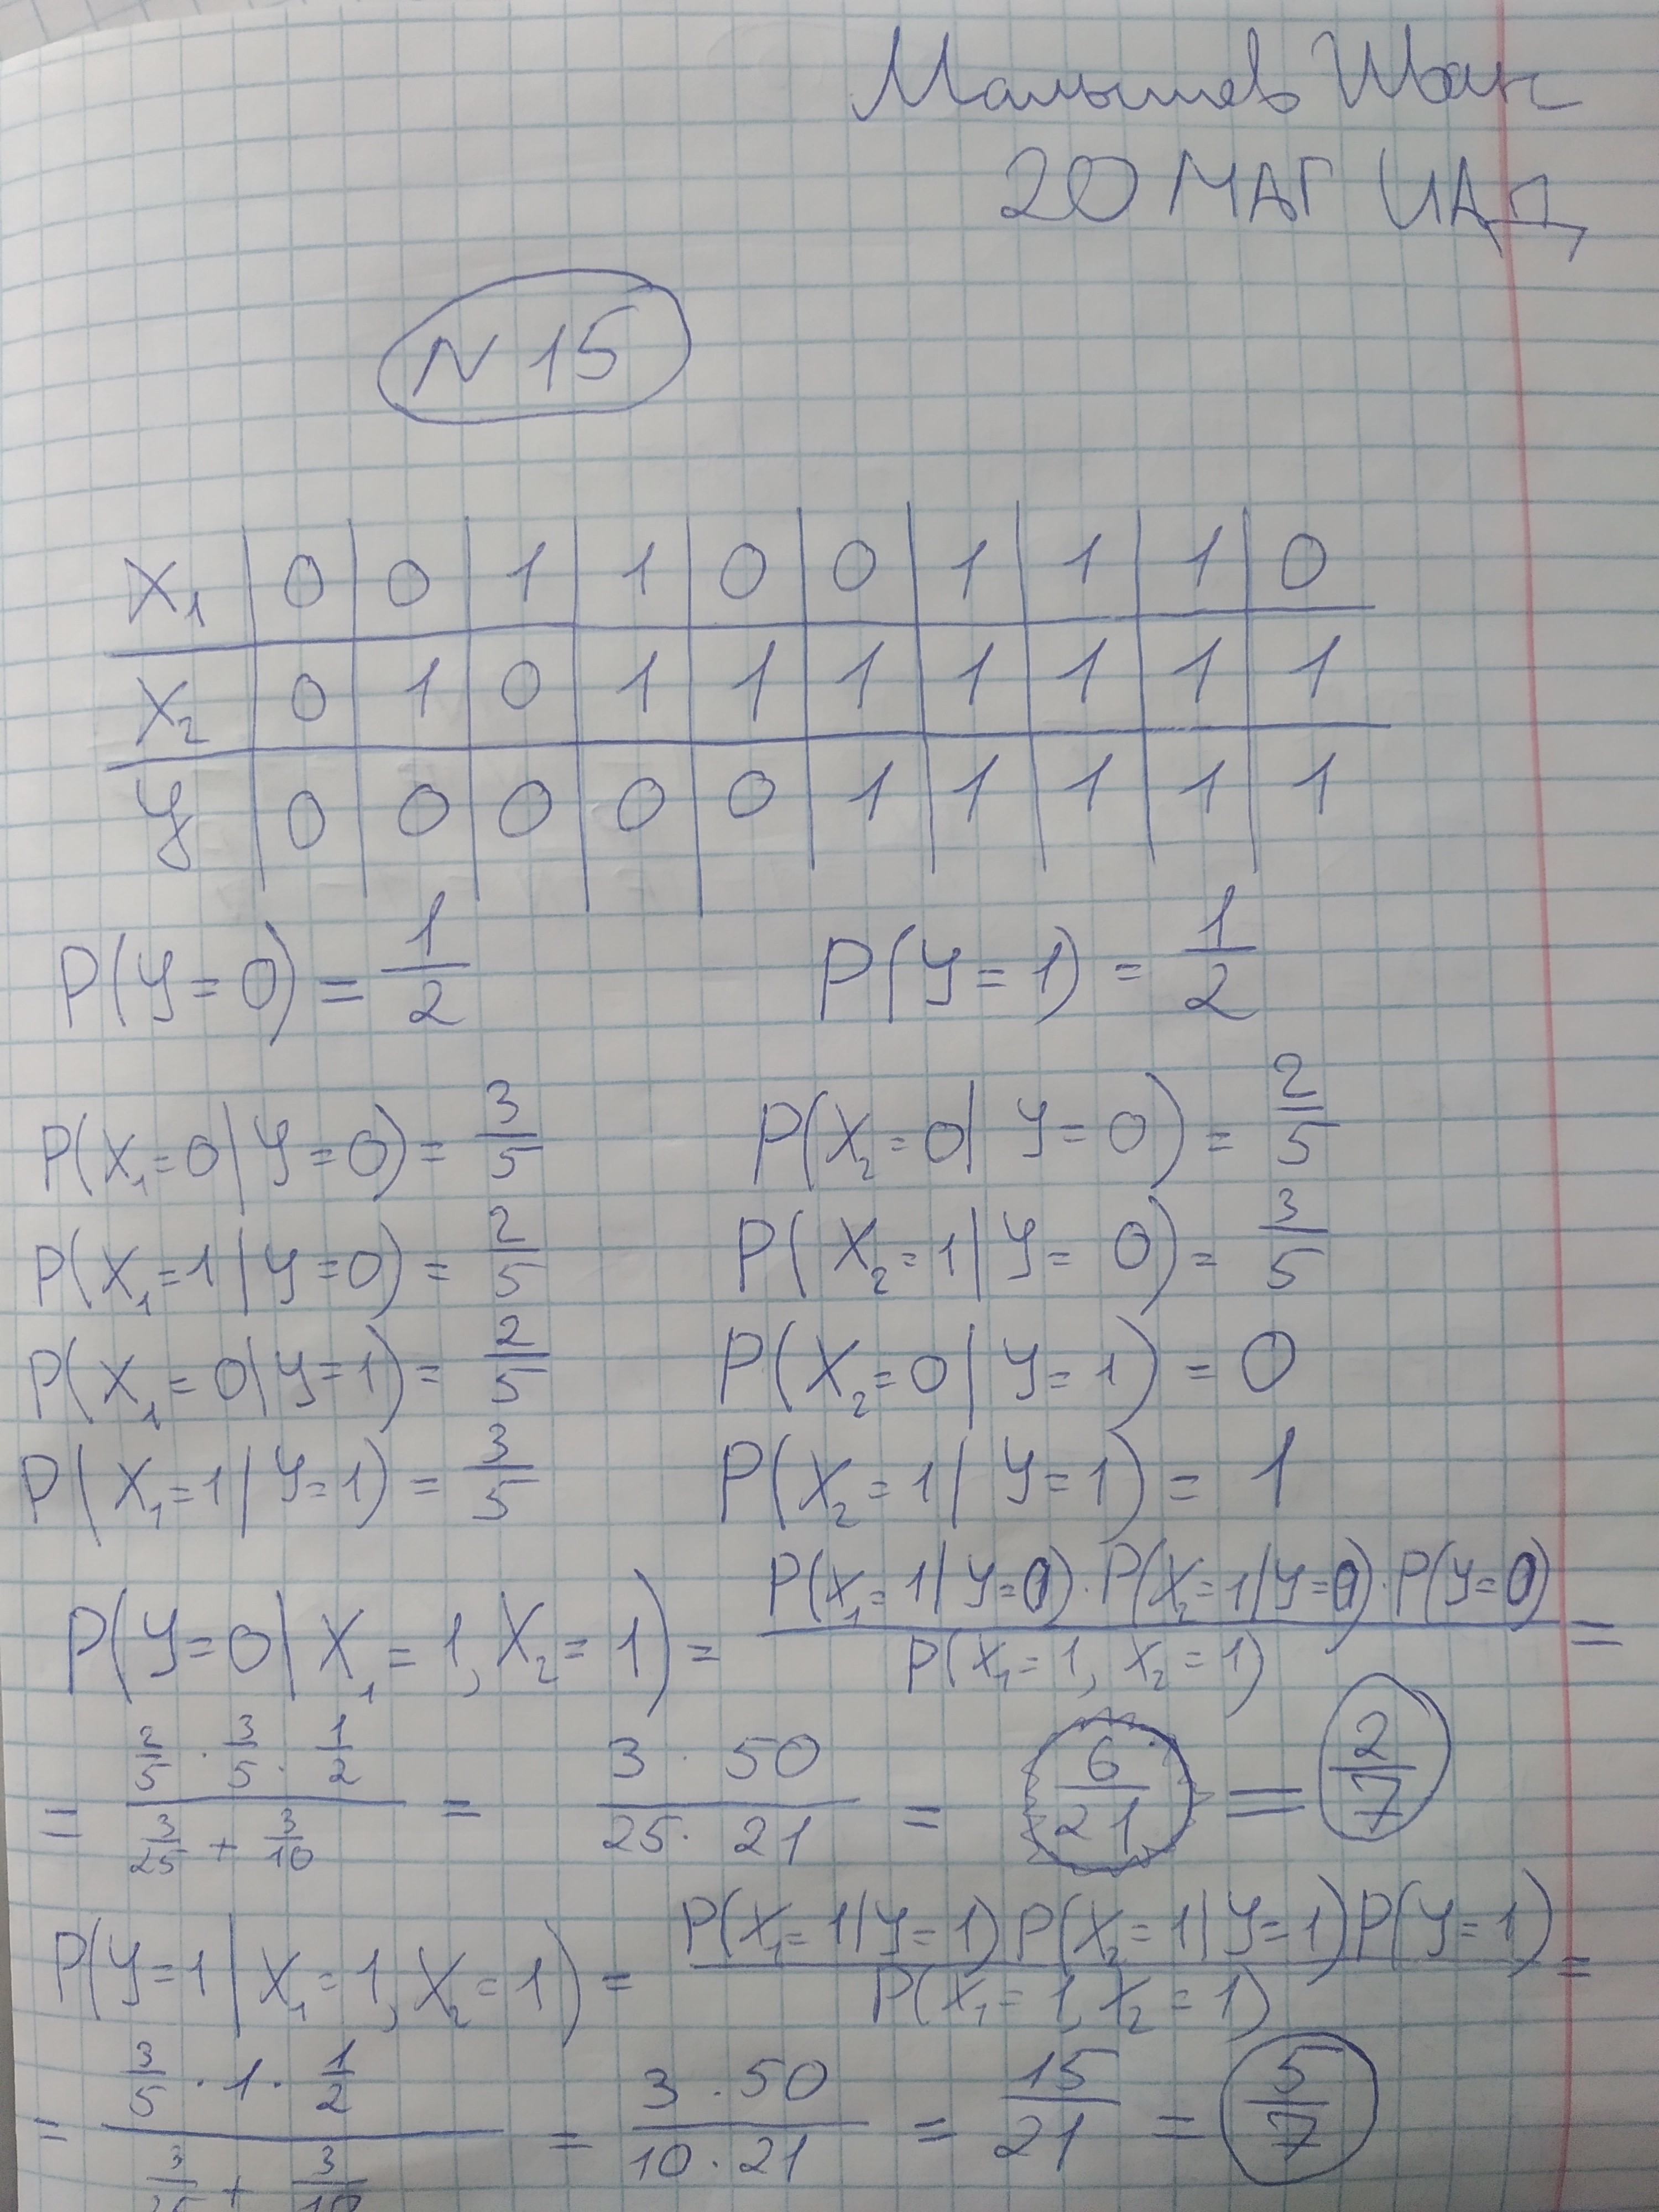 Малышев Иван
20 МАГ ИАД
N 15
X₁ 0 0 1 1 0 0 1 1 1 0
X₂ 0 1 0 1 1 1 1 1 1 1
Y 0 0 0 0 0 1 1 1 1 1
P(Y=0) = 1/2 P(Y=1) = 1/2
P(X₁=0|Y=0) = 3/5 P(X₂=0|Y=0) = 2/5
P(X₁=1|Y=0) = 2/5 P(X₂=1|Y=0) = 3/5
P(X₁=0|Y=1) = 2/5 P(X₂=0|Y=1) = 0
P(X₁=1|Y=1) = 3/5 P(X₂=1|Y=1) = 1
P(Y=0|X₁=1, X₂=1) = P(X₁=1|Y=0)·P(X₂=1|Y=0)·P(Y=0) / P(X₁=1, X₂=1) =
= (2/5 · 3/5 · 1/2) / (3/25 + 3/10) = 3 · 50 / 25 · 21 = 6/21 = 2/7
P(Y=1|X₁=1, X₂=1) = P(X₁=1|Y=1) P(X₂=1|Y=1) P(Y=1) / P(X₁=1, X₂=1) =
= (3/5 · 1 · 1/2) / (3/25 + 3/10) = 3 · 50 / 10 · 21 = 15/21 = 5/7